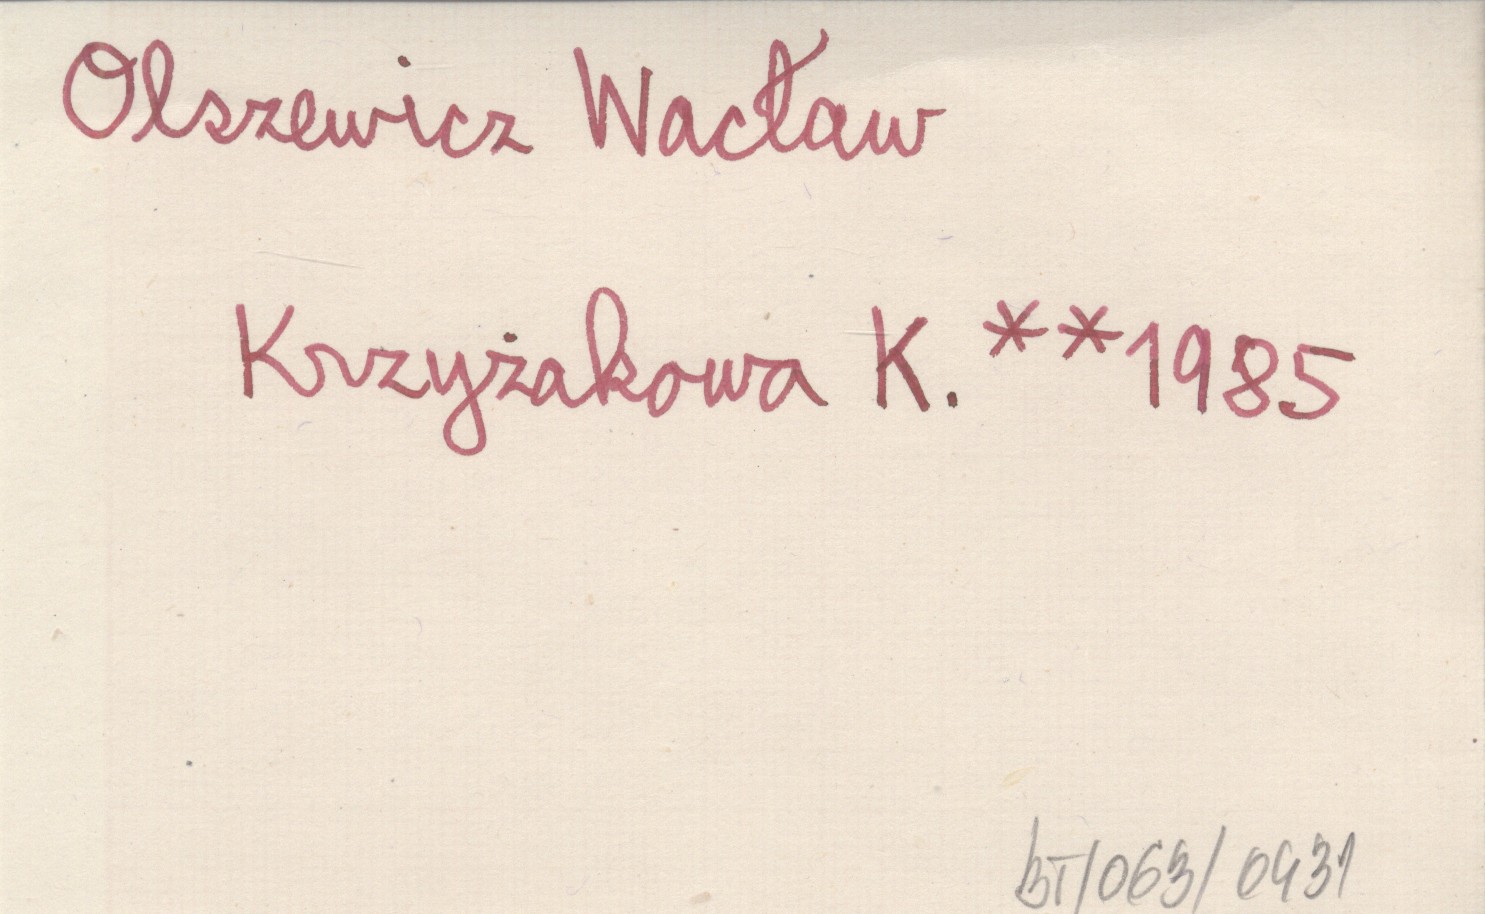 Olszewicz Wacław
Krzyżakowa K. **1985
BT/063/0931